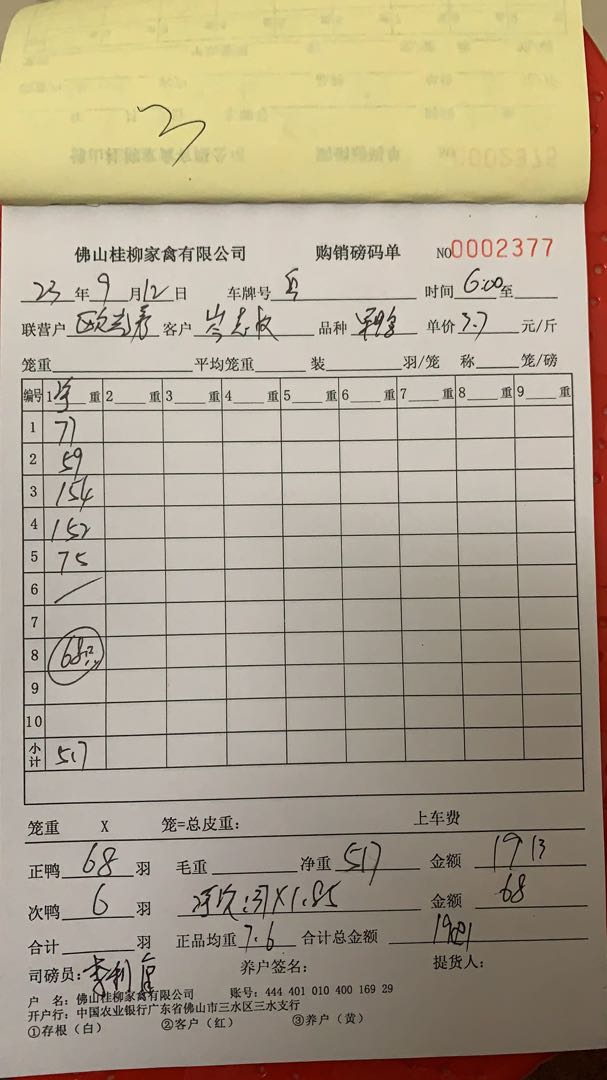 佛山桂柳家禽有限公司 购销磅码单 NO0002377
23年9月12日 车牌号 时间6:00至
联营户 客户 品种 单价3.7元/斤
笼重 平均笼重 装 羽/笼 称 笼/磅
编号 1净重 2 重 3 重 4 重 5 重 6 重 7 重 8 重 9 重
1 77
2 59
3 154
4 152
5 75
6
7
8 68
9
10
小计 517
笼重 X 笼=总皮重: 上车费
正鸭68羽 毛重 净重517 金额1913
次鸭6羽 X1.85 金额68
合计 羽 正品均重7.6 合计总金额1981
司磅员: 养户签名: 提货人:
户 名: 佛山桂柳家禽有限公司 账号: 444 401 010 400 169 29
开户行: 中国农业银行广东省佛山市三水区三水支行
①存根（白） ②客户（红） ③养户（黄）